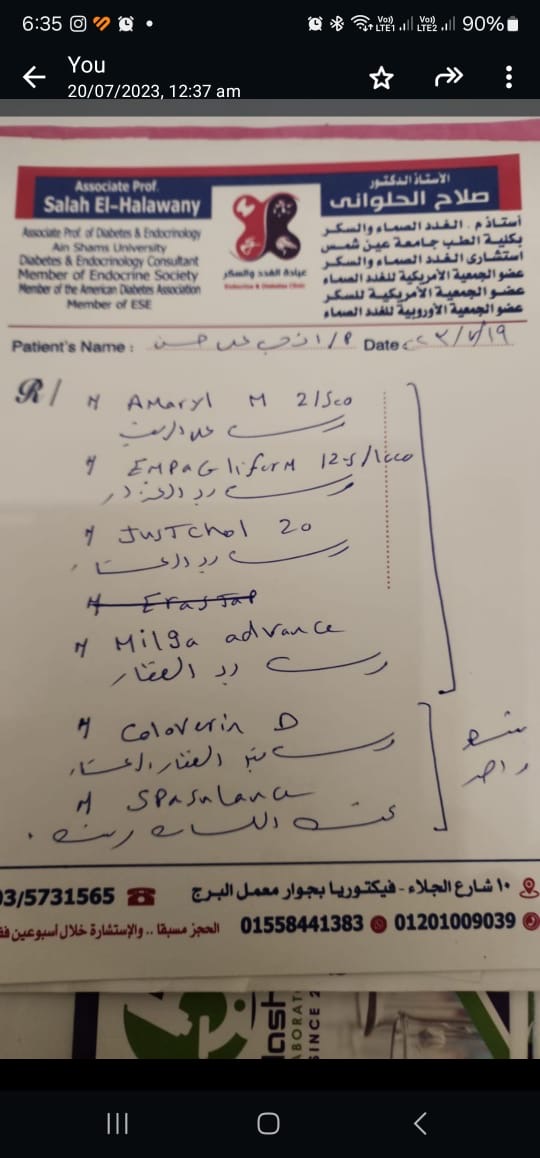 6:35
Vo)) LTE1 Vo)) LTE2 90%
You
20/07/2023, 12:37 am
Associate Prof.
Salah El-Halawany
Associate Prof. of Diabetes & Endocrinology
Ain Shams University
Diabetes & Endocrinology Consultant
Member of Endocrine Society
Member of the American Diabetes Association
Member of ESE
عيادة الغدد والسكر
Endocrine & Diabetes Clinic
الأستاذ الدكتور
صلاح الحلوانى
أستاذ م. الغدد الصماء والسكر
بكلية الطب جامعة عين شمس
استشارى الغدد الصماء والسكر
عضو الجمعية الأمريكية للغدد الصماء
عضو الجمعية الأمريكية للسكر
عضو الجمعية الأوروبية للغدد الصماء
Patient's Name :
Date
R/
Amaryl M 2/500
قرص
EMPAGliforM 12.5/1000
قرص بعد
JusTchol 20
قرص بعد العشاء
Milga advance
قرص بعد الفطار
Coloverin D
قرص قبل الفطار والعشاء
Spasulance
واحد
١٠ شارع الجلاء - فيكتوريا بجوار معمل البرج
03/5731565
01201009039 01558441383
الحجز مسبقا .. والإستشارة خلال أسبوعين
SINCE 2